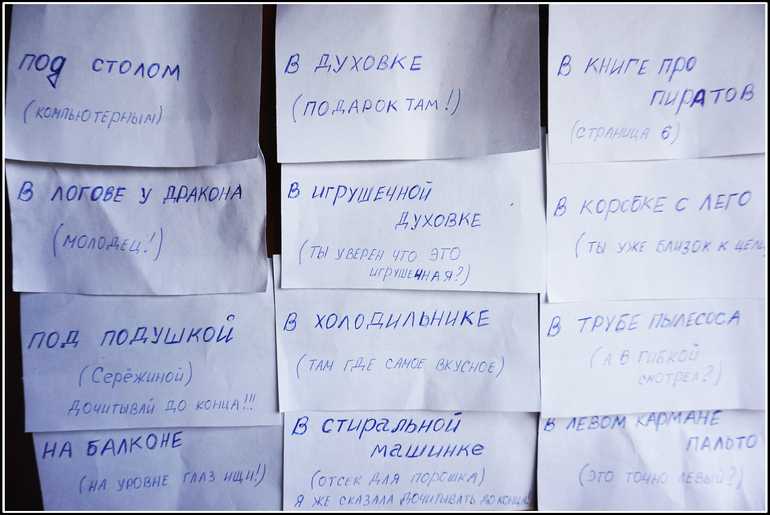 ПОД СТОЛОМ
(КОМПЬЮТЕРНЫМ)
В ЛОГОВЕ У ДРАКОНА
(МОЛОДЕЦ!)
ПОД ПОДУШКОЙ
(Серёжиной)
ДОЧИТЫВАЙ ДО КОНЦА!!!
НА БАЛКОНЕ
(НА УРОВНЕ ГЛАЗ ИЩИ!)
В ДУХОВКЕ
(ПОДАРОК ТАМ!)
В ИГРУШЕЧНОЙ
ДУХОВКЕ
(ТЫ УВЕРЕН ЧТО ЭТО
ИГРУШЕЧНАЯ?)
В ХОЛОДИЛЬНИКЕ
(ТАМ ГДЕ САМОЕ ВКУСНОЕ)
В СТИРАЛЬНОЙ
МАШИНКЕ
(ОТСЕК ДЛЯ ПОРОШКА)
Я ЖЕ СКАЗАЛА ДОЧИТЫВАТЬ ДО КОНЦА
В КНИГЕ ПРО
ПИРАТОВ
(СТРАНИЦА 6)
В КОРОБКЕ С ЛЕГО
(ТЫ УЖЕ БЛИЗОК К ЦЕЛИ
В ТРУБЕ ПЫЛЕСОСА
(А В ГИБКОЙ
СМОТРЕЛ?)
В ЛЕВОМ КАРМАНЕ
ПАЛЬТО
(ЭТО ТОЧНО ЛЕВЫЙ?)